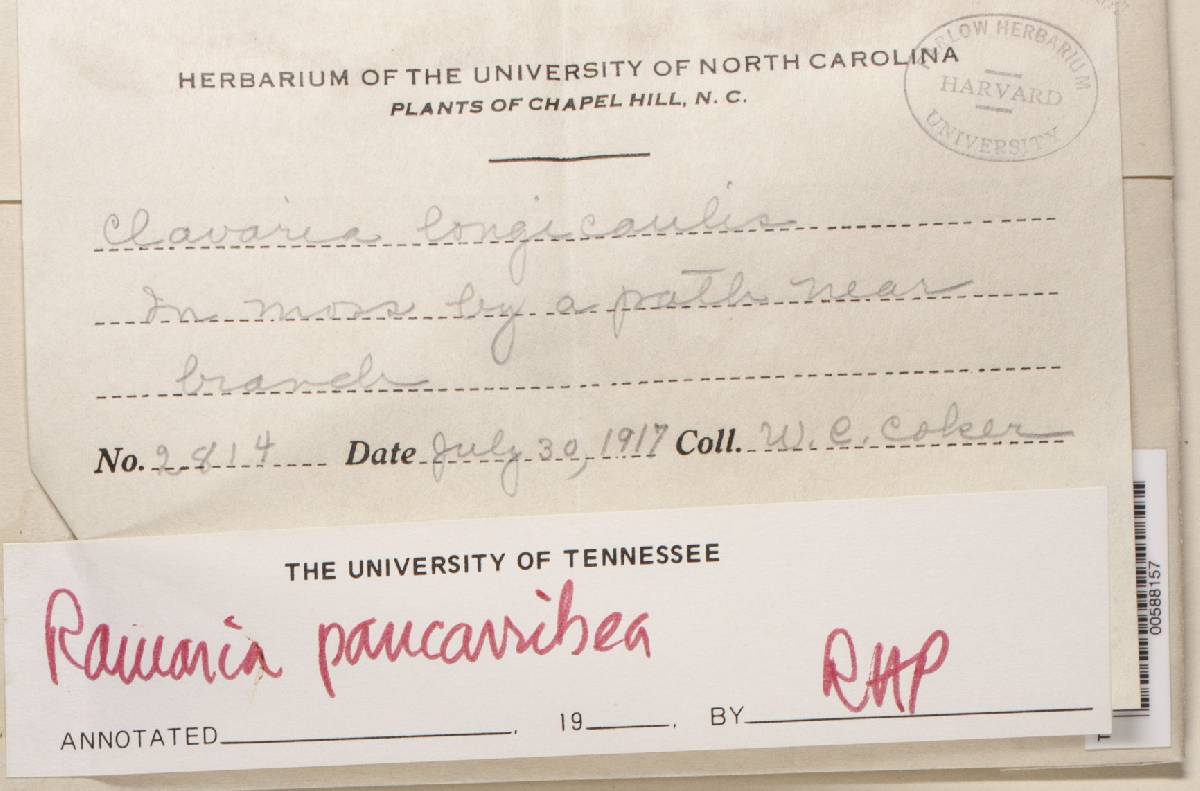 HERBARIUM OF THE UNIVERSITY OF NORTH CAROLINA
PLANTS OF CHAPEL HILL, N. C.
FARLOW HERBARIUM
HARVARD
UNIVERSITY
Clavaria longicaulis
In moss by a path near
branch
No. 2814 Date July 30, 1917 Coll. W. C. Coker
THE UNIVERSITY OF TENNESSEE
Ramaria
RHP
ANNOTATED , 19 , BY
00588157